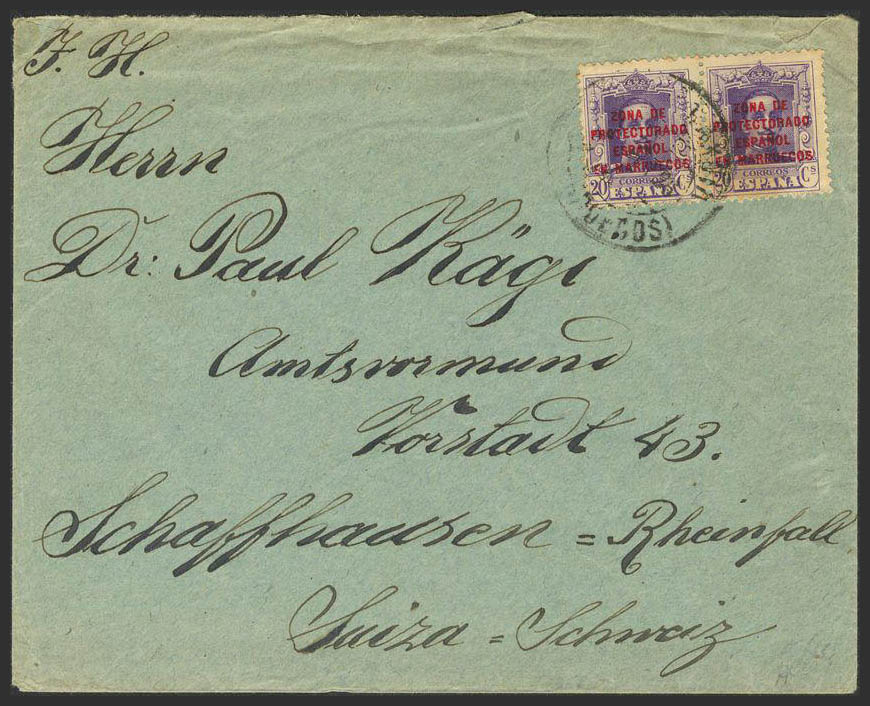 J. H.
ZONA DE
PROTECTORADO
ESPAÑOL
EN MARRUECOS
CORREOS
20 ESPAÑA Cs
ZONA DE
PROTECTORADO
ESPAÑOL
EN MARRUECOS
CORREOS
20 ESPAÑA Cs
Herrn
Dr: Paul Kägi
Amtsvormund
Vorstadt 43.
Schaffhausen = Rheinfall
Suiza = Schweiz